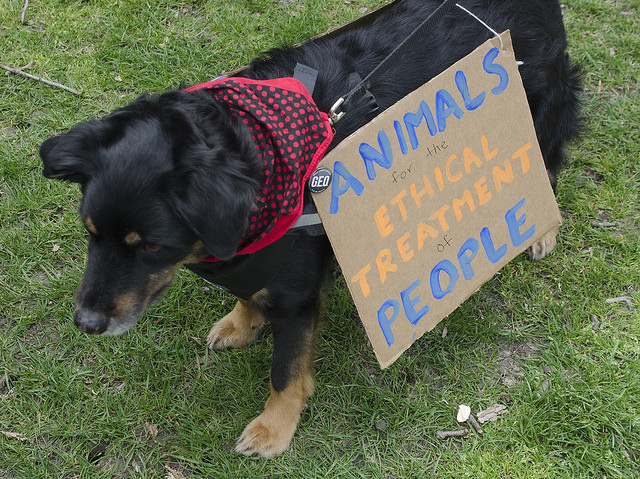 ANIMALS
for the
ETHICAL
TREATMENT
of
PEOPLE
GEO